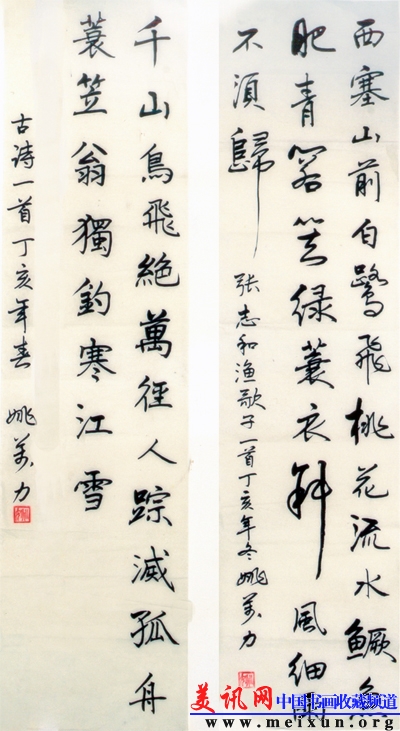 西塞山前白鹭飛桃花流水鳜魚
肥青箬笠绿蓑衣斜風细雨
不須歸
张志和渔歌子一首丁亥年冬姚万力
千山鳥飛絶萬徑人踪滅孤舟
蓑笠翁獨釣寒江雪
古诗一首丁亥年春 姚万力
美讯网 中国书画收藏频道
www.meixun.org